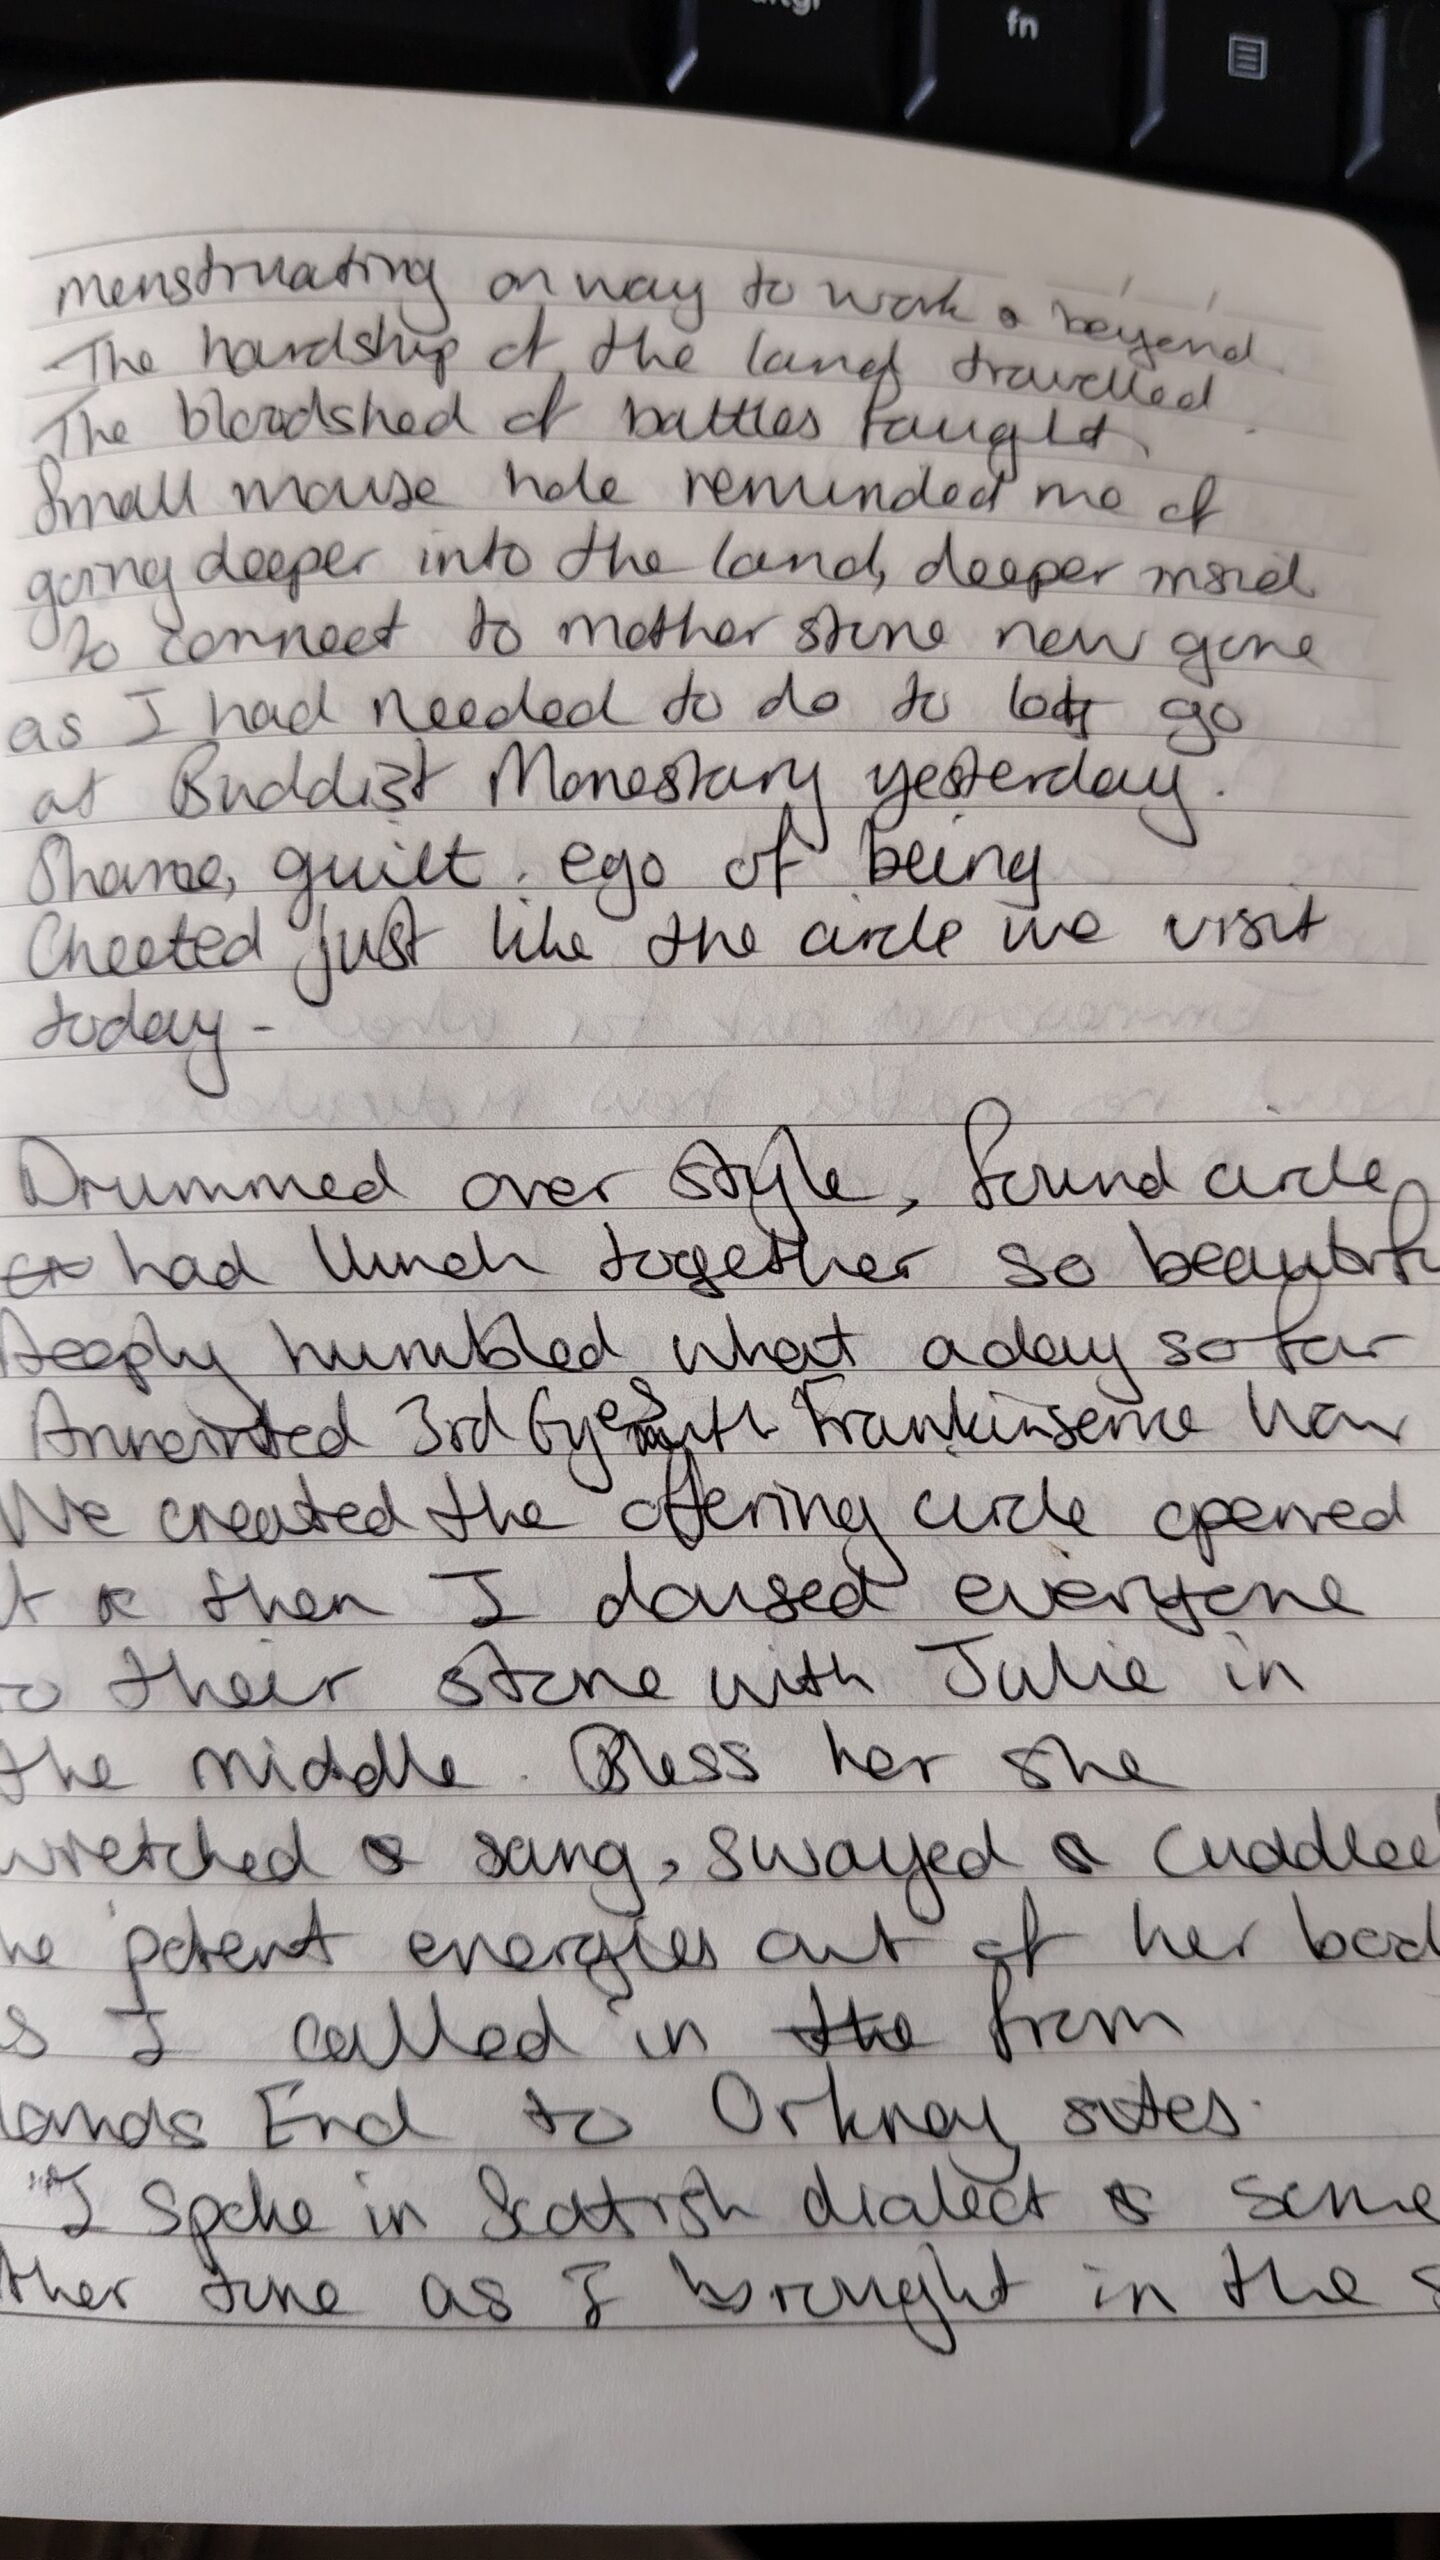 fn
menstruating on way to work & beyond
The hardship of the land travelled
The bloodshed of battles faught
Small mouse hole reminded me of
going deeper into the land, deeper insid
to connect to mother stone now gone
as I had needed to do to go
at Buddist Monestary yesterday.
Shame, guilt. ego of being
Cheeted just like the circle we visit
today -
Drummed over style, found circle
had lunch together so beautifu
Deeply humbled what a day so far
Annointed 3rd Eyes with Frankinsense
We created the offering circle opened
t & then I doused everyone
o their stone with Julie in
the middle. Bless her she
wretched & sang, swayed & cuddled
he potent energies out of her bod
s I called in the from
lands End to Orkney sites.
"I spoke in Scottish dialect & some
ther tone as I brought in the s